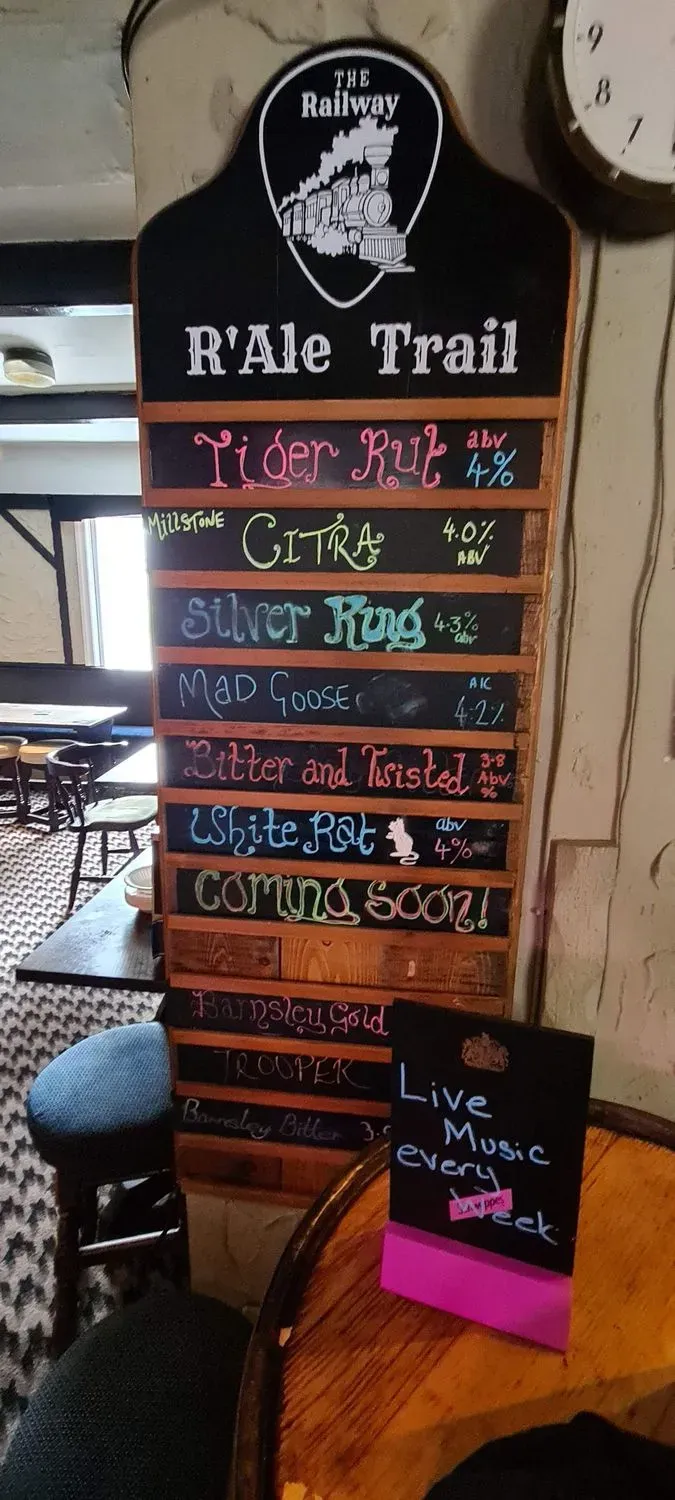 THE
Railway
R'Ale Trail
Tiger Rut abv 4%
Millstone CITRA 4.0% ABV
Silver King 4.3% abv
MAD GOOSE 4.2%
Bitter and Twisted 3.8 Abv %
White Rat abv 4%
Coming Soon!
Barnsley Gold
TROOPER
Barnsley Bitter 3.
Live
Music
every
Week
9
8
7